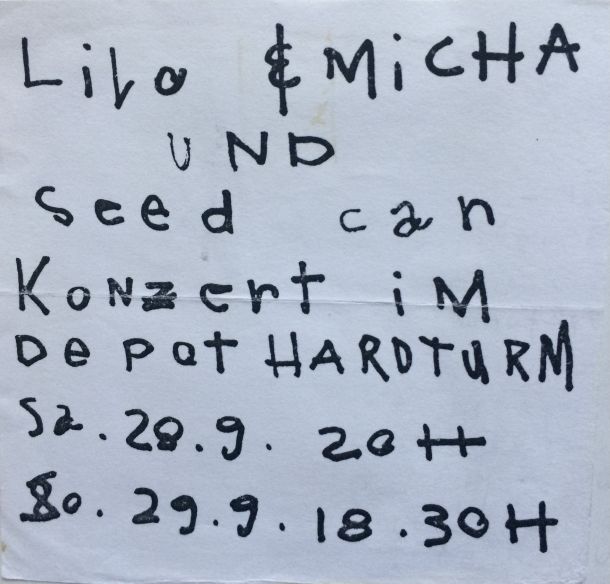 Lilo & MiCHA
UND
Seed can
KoNzert iM
Depot HARDTURM
Sa. 28.9. 20H
So. 29.9. 18.30H